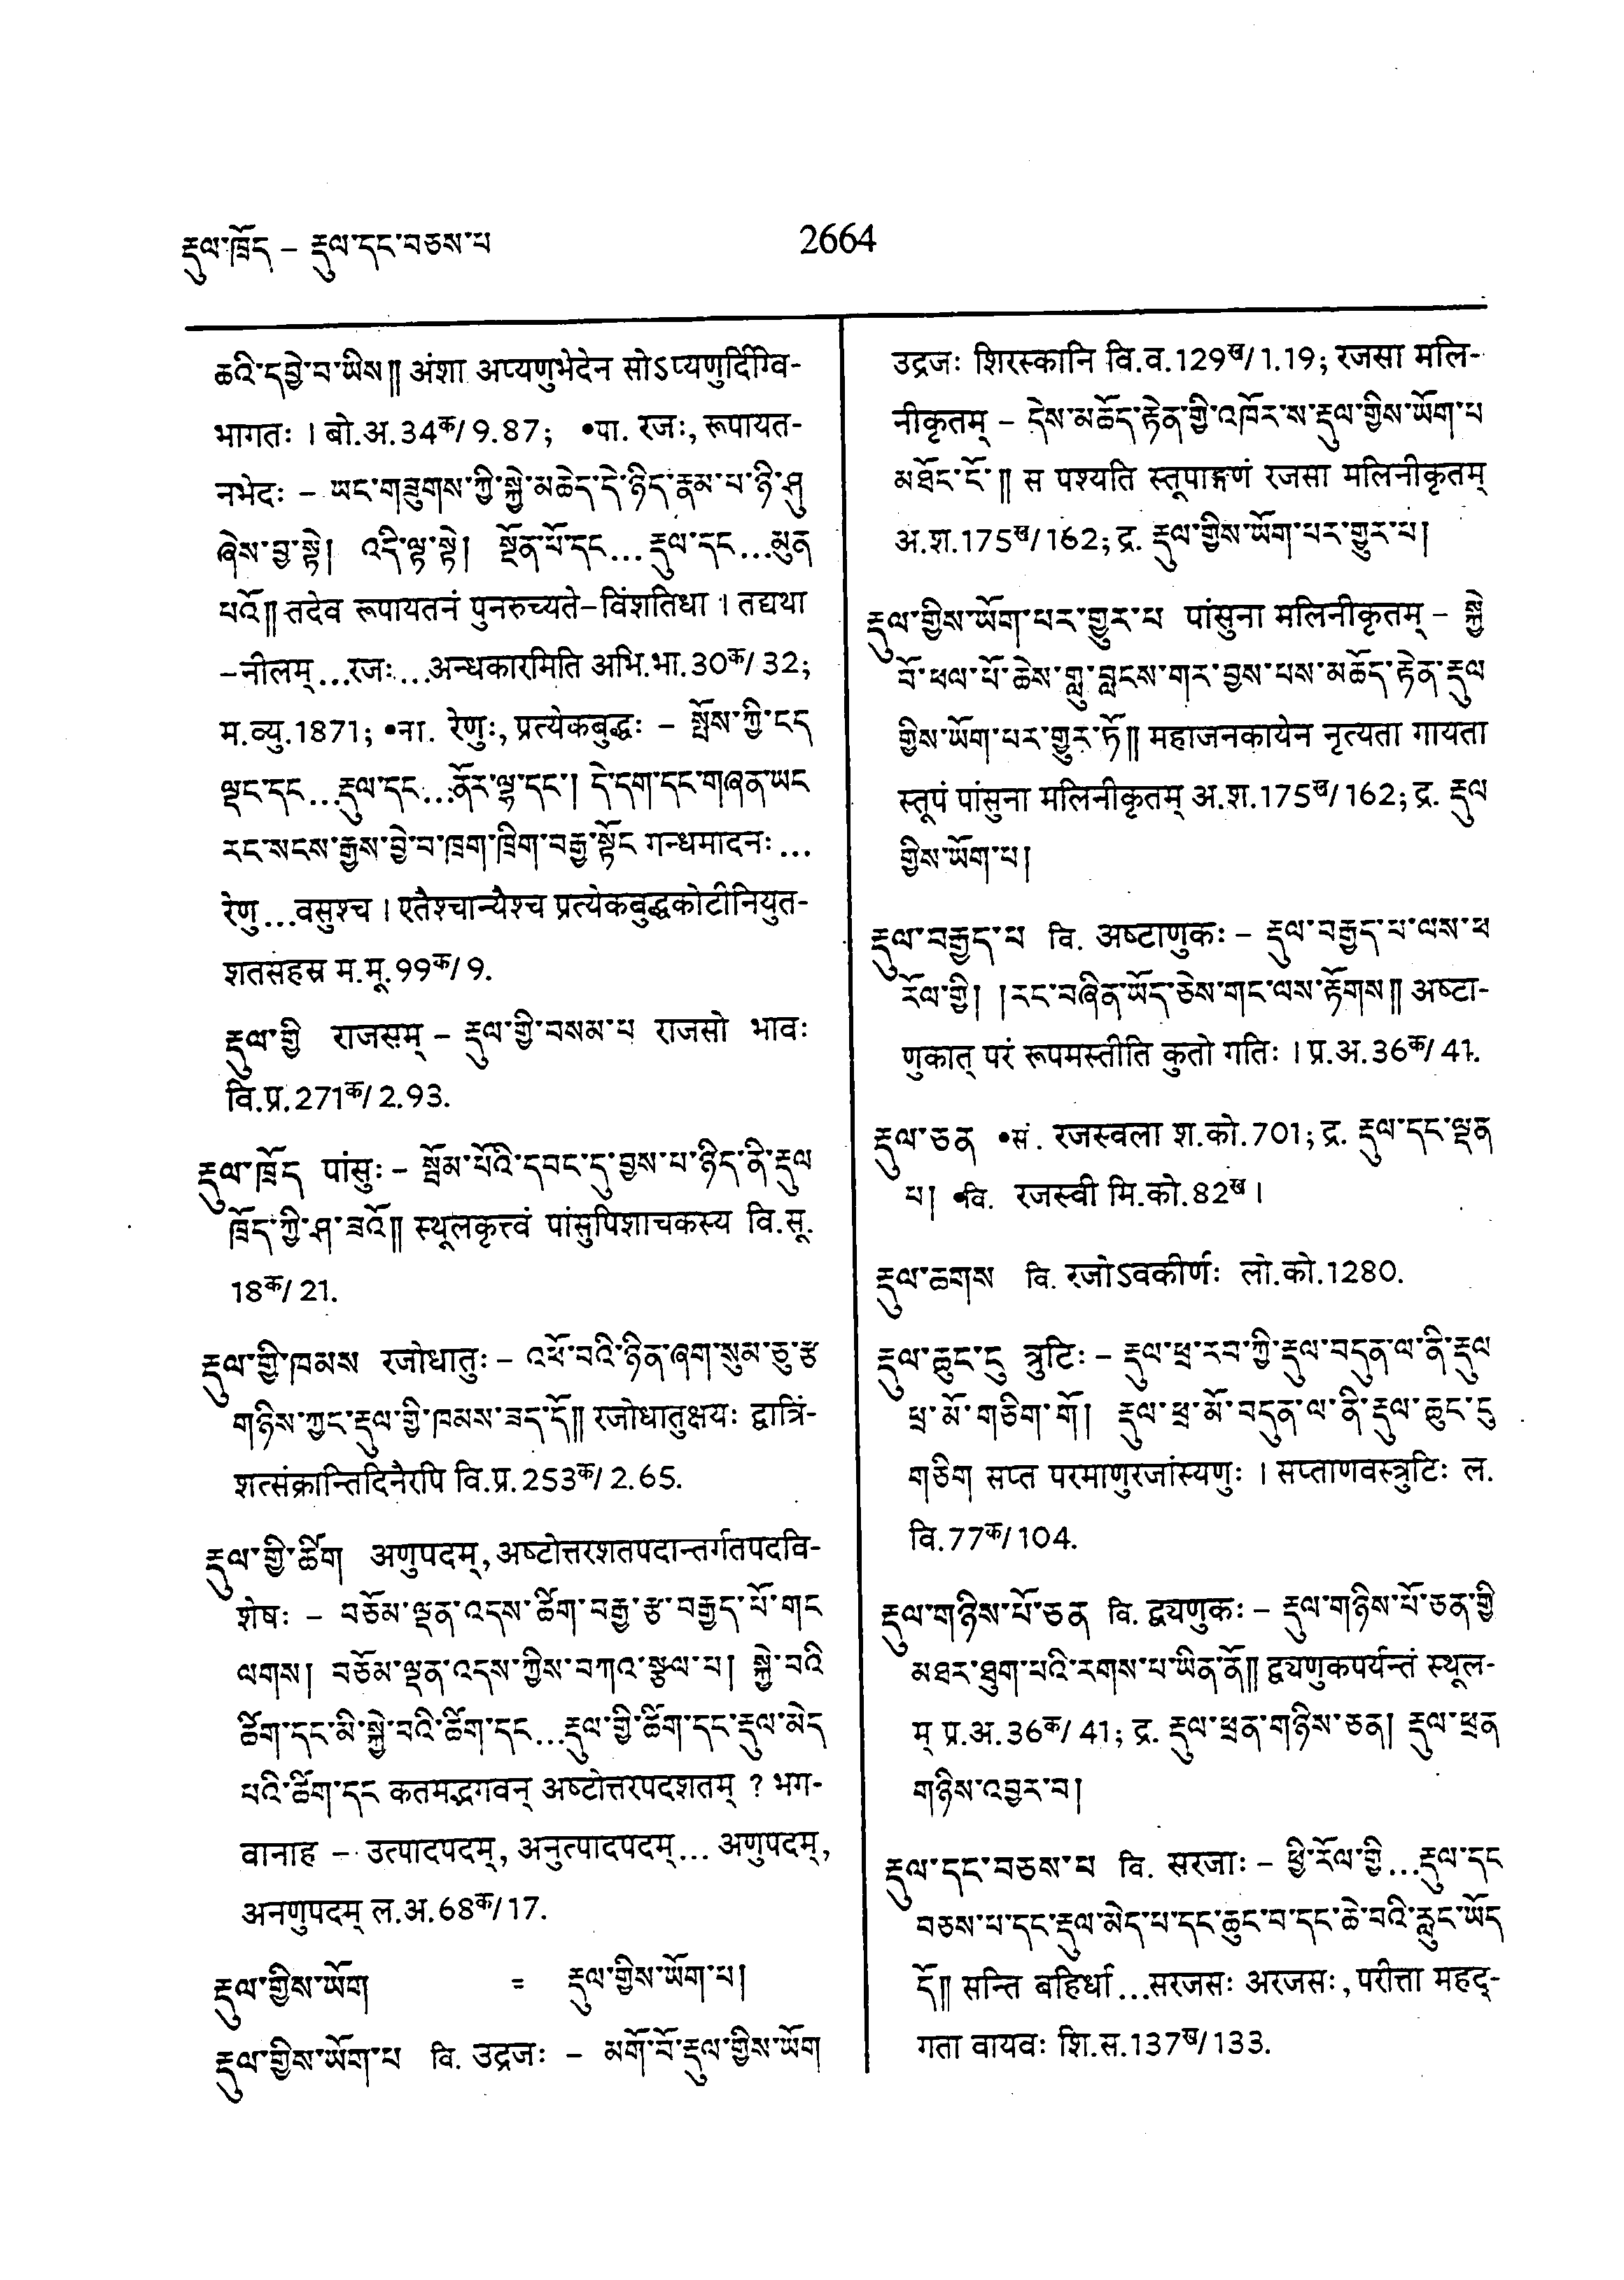 རྡུལ་ཁྲོད – རྡུལ་དང་བཅས་པ
2664
ཆའི་དབྱེ་བ་ཡིས༎ अंशा अप्यणुभेदेन सोऽप्यणुर्दिग्वि-
भागतः । बो.अ.34क/9.87; •पा. रजः, रूपायत-
नभेदः – ཡང་གཟུགས་ཀྱི་སྐྱེ་མཆེད་དེ་ཉིད་རྣམ་པ་ཉི་ཤུ
ཞེས་བྱ་སྟེ། འདི་ལྟ་སྟེ། སྔོན་པོ་དང...རྡུལ་དང...མུན
པའོ༎ तदेव रूपायतनं पुनरुच्यते–विंशतिधा । तद्यथा
–नीलम्...रजः...अन्धकारमिति अभि.भा.30क/32;
म.व्यु.1871; •ना. रेणुः, प्रत्येकबुद्धः – སྤོས་ཀྱི་ངད
ལྡང་དང...རྡུལ་དང...ནོར་ལྷ་དང་། དེ་དག་དང་གཞན་ཡང
རང་སངས་རྒྱས་བྱེ་བ་ཁྲག་ཁྲིག་བརྒྱ་སྟོང गन्धमादनः...
रेणु...वसुश्च । एतैश्चान्यैश्च प्रत्येकबुद्धकोटीनियुत-
शतसहस्र म.मू.99क/9.
རྡུལ་གྱི राजसम् – རྡུལ་གྱི་བསམ་པ राजसो भावः
वि.प्र.271क/2.93.
རྡུལ་ཁྲོད पांसुः – སྦོམ་པོའི་དབང་དུ་བྱས་པ་ཉིད་ནི་རྡུལ
ཁྲོད་ཀྱི་ཤ་ཟའོ༎ स्थूलकृत्त्वं पांसुपिशाचकस्य वि.सू.
18क/21.
རྡུལ་གྱི་ཁམས रजोधातुः – འཕོ་བའི་ཉིན་ཞག་སུམ་ཅུ་རྩ
གཉིས་ཀྱང་རྡུལ་གྱི་ཁམས་ཟད་དོ༎ रजोधातुक्षयः द्वात्रिं-
शत्संक्रान्तिदिनैरपि वि.प्र.253क/2.65.
རྡུལ་གྱི་ཚིག अणुपदम्, अष्टोत्तरशतपदान्तर्गतपदवि-
शेषः – བཅོམ་ལྡན་འདས་ཚིག་བརྒྱ་རྩ་བརྒྱད་པོ་གང
ལགས། བཅོམ་ལྡན་འདས་ཀྱིས་བཀའ་སྩལ་པ། སྐྱེ་བའི
ཚིག་དང་མི་སྐྱེ་བའི་ཚིག་དང...རྡུལ་གྱི་ཚིག་དང་རྡུལ་མེད
པའི་ཚིག་དང कतमद्भगवन् अष्टोत्तरपदशतम् ? भग-
वानाह – उत्पादपदम्, अनुत्पादपदम्... अणुपदम्,
अनणुपदम् ल.अ.68क/17.
རྡུལ་གྱིས་ཡོག = རྡུལ་གྱིས་ཡོག་པ།
རྡུལ་གྱིས་ཡོག་པ वि. उद्रजः – མགོ་བོ་རྡུལ་གྱིས་ཡོག
उद्रजः शिरस्कानि वि.व.129ख/1.19; रजसा मलि-
नीकृतम् – དེས་མཆོད་རྟེན་གྱི་འཁོར་ས་རྡུལ་གྱིས་ཡོག་པ
མཐོང་ངོ་༎ स पश्यति स्तूपाङ्गणं रजसा मलिनीकृतम्
अ.श.175ख/162; द्र. རྡུལ་གྱིས་ཡོག་པར་གྱུར་པ།
རྡུལ་གྱིས་ཡོག་པར་གྱུར་པ पांसुना मलिनीकृतम् – སྐྱེ
བོ་ཕལ་པོ་ཆེས་གླུ་བླངས་གར་བྱས་པས་མཆོད་རྟེན་རྡུལ
གྱིས་ཡོག་པར་གྱུར་ཏོ༎ महाजनकायेन नृत्यता गायता
स्तूपं पांसुना मलिनीकृतम् अ.श.175ख/162; द्र. རྡུལ
གྱིས་ཡོག་པ།
རྡུལ་བརྒྱད་པ वि. अष्टाणुकः – རྡུལ་བརྒྱད་པ་ལས་ཕ
རོལ་གྱི། །རང་བཞིན་ཡོད་ཅེས་གང་ལས་རྟོགས༎ अष्टा-
णुकात् परं रूपमस्तीति कुतो गतिः । प्र.अ.36क/41.
རྡུལ་ཅན •सं. रजस्वला श.को.701; द्र. རྡུལ་དང་ལྡན
པ། •वि. रजस्वी मि.को.82ख ।
རྡུལ་ཆགས वि. रजोऽवकीर्णः लो.को.1280.
རྡུལ་ཆུང་ངུ त्रुटिः – རྡུལ་ཕྲ་རབ་ཀྱི་རྡུལ་བདུན་ལ་ནི་རྡུལ
ཕྲ་མོ་གཅིག་གོ། རྡུལ་ཕྲ་མོ་བདུན་ལ་ནི་རྡུལ་ཆུང་ངུ
གཅིག सप्त परमाणुरजांस्यणुः । सप्ताणवस्त्रुटिः ल.
वि.77क/104.
རྡུལ་གཉིས་པོ་ཅན वि. द्व्यणुकः – རྡུལ་གཉིས་པོ་ཅན་གྱི
མཐར་ཐུག་པའི་རགས་པ་ཡིན་ནོ༎ द्व्यणुकपर्यन्तं स्थूल-
म् प्र.अ.36क/41; द्र. རྡུལ་ཕྲན་གཉིས་ཅན། རྡུལ་ཕྲན
གཉིས་འབྱར་བ།
རྡུལ་དང་བཅས་པ वि. सरजाः – ཕྱི་རོལ་གྱི...རྡུལ་དང
བཅས་པ་དང་རྡུལ་མེད་པ་དང་ཆུང་བ་དང་ཆེ་བའི་རླུང་ཡོད
དོ༎ सन्ति बहिर्धा...सरजसः अरजसः, परीत्ता महद्-
गता वायवः शि.स.137ख/133.